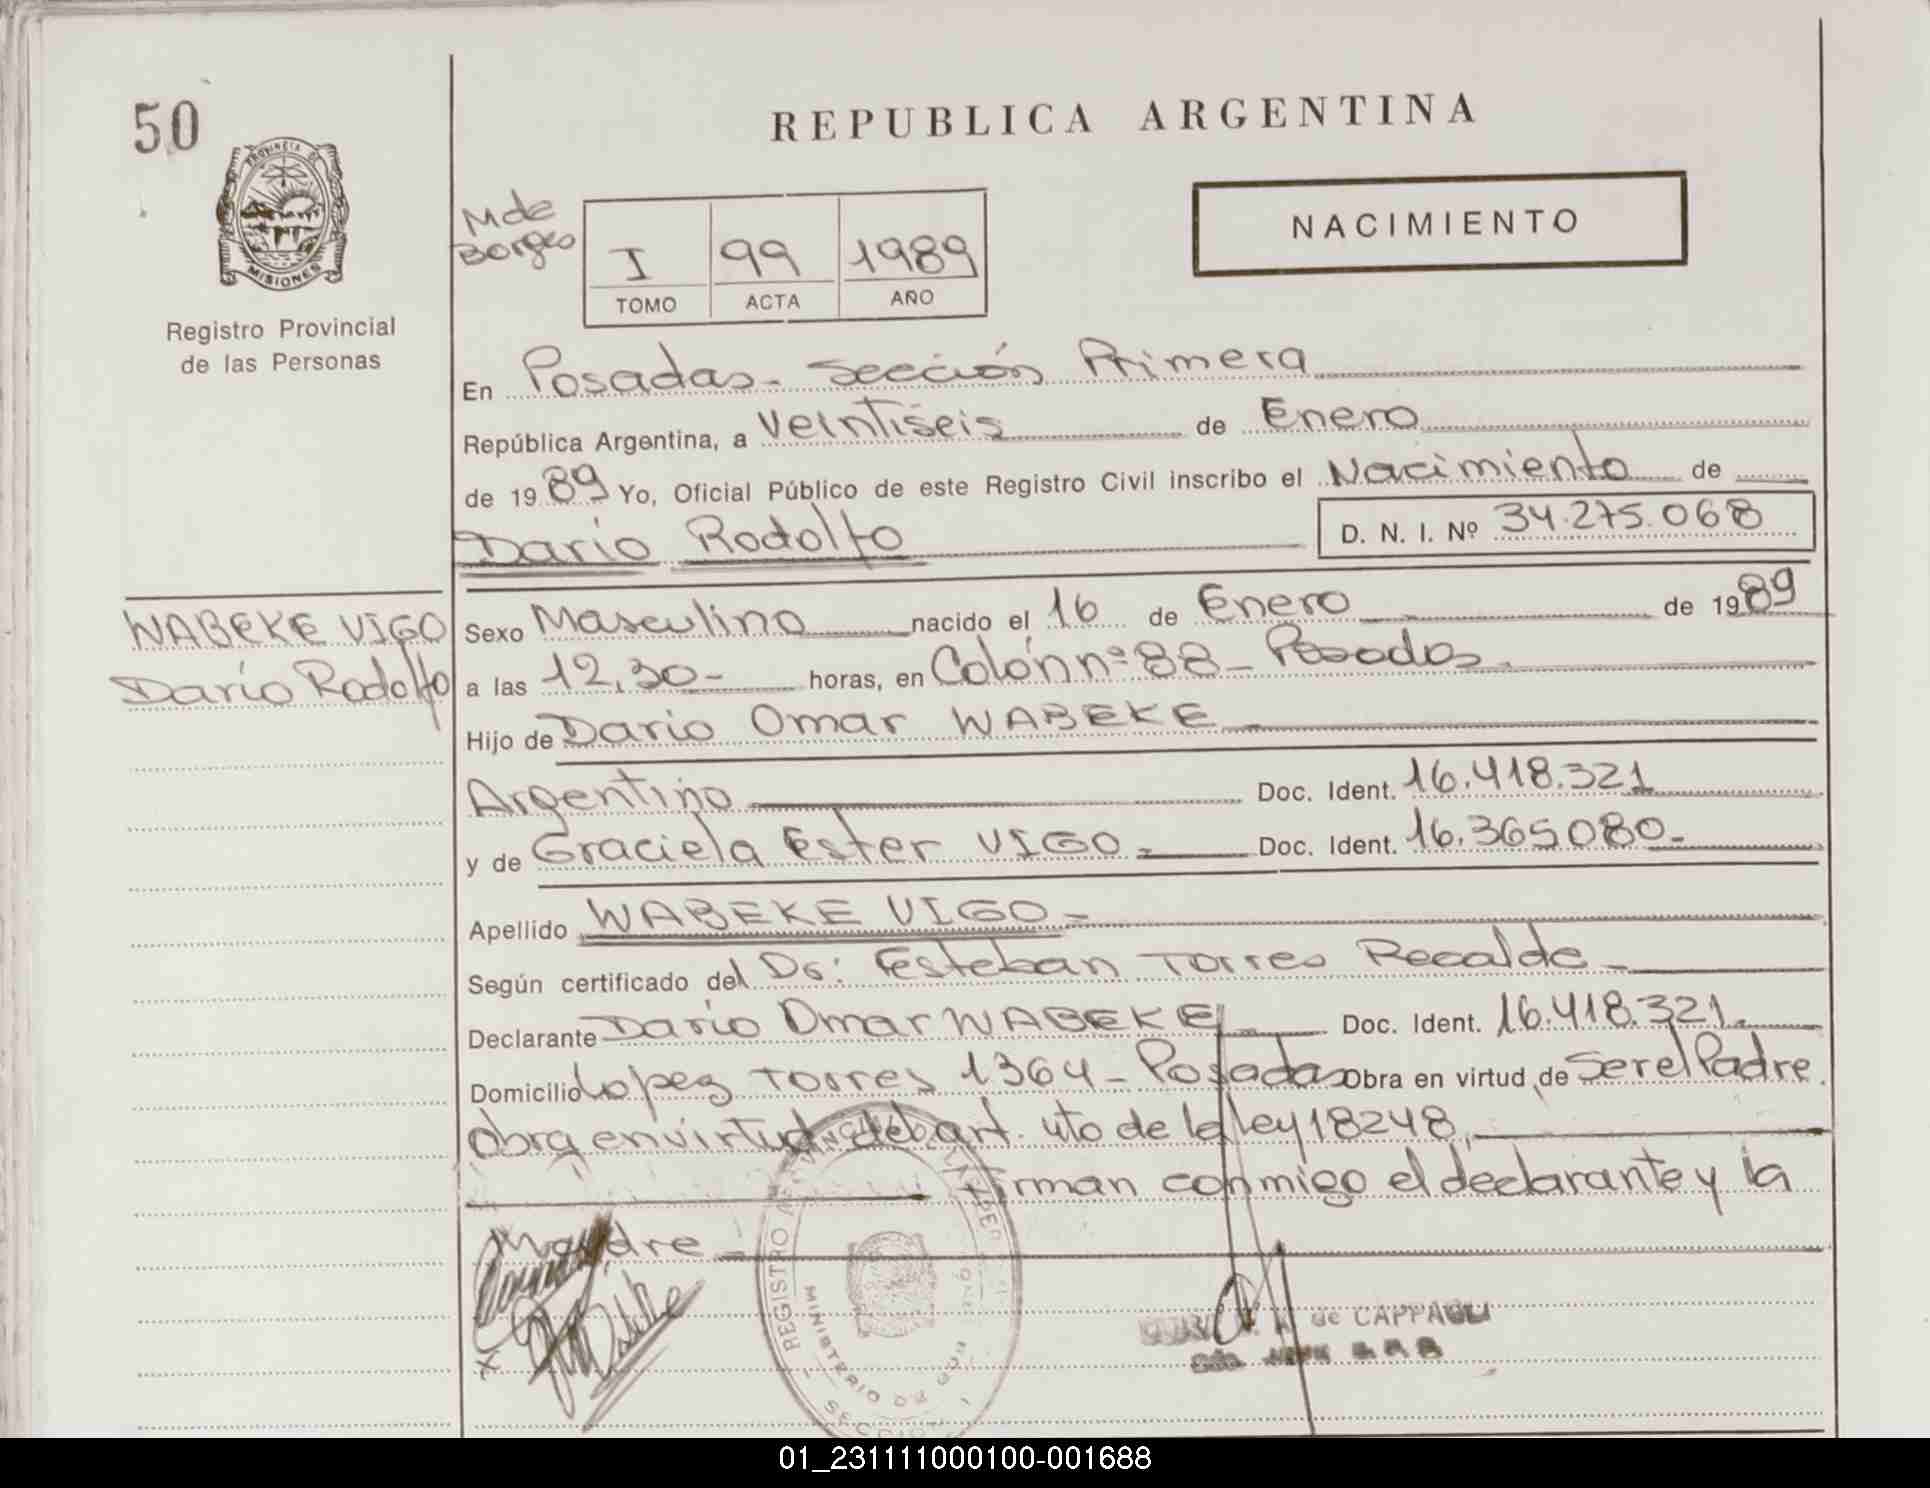 50
PROVINCIA DE
MISIONES
Registro Provincial
de las Personas
REPUBLICA ARGENTINA
M de
Borges
I 99 1989
TOMO ACTA AÑO
NACIMIENTO
En Posadas - Sección Primera
República Argentina, a Veintiseis de Enero
de 1989 Yo, Oficial Público de este Registro Civil inscribo el Nacimiento de
Dario Rodolfo D. N. I. Nº 34.275.068
WABEKE VIGO
Darío Rodolfo
Sexo Masculino nacido el 16 de Enero de 1989
a las 12,30- horas, en Colón nº 88 - Posadas.
Hijo de Dario Omar WABEKE
Argentino Doc. Ident. 16.418.321
y de Graciela Ester VIGO - Doc. Ident. 16.365080-
Apellido WABEKE VIGO -
Según certificado del Dr: Esteban Torres Recalde -
Declarante Darío Omar WABEKE Doc. Ident. 16.418.321.
Domicilio Lopez Torres 1364 - Posadas Obra en virtud de Ser el Padre.
Obra en virtud del art. 4to de la ley 18248,
Firman conmigo el declarante y la
Madre -
REGISTRO
MINISTERIO DE
SECCION
de CAPPAGLI
01_231111000100-001688